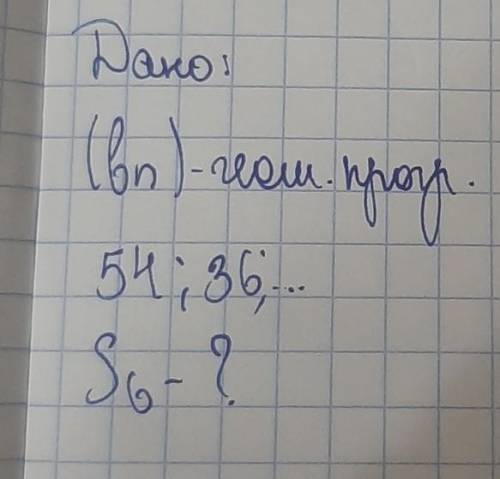 Дано:
(bn) - геом. прогр.
54; 36; ...
S6 - ?